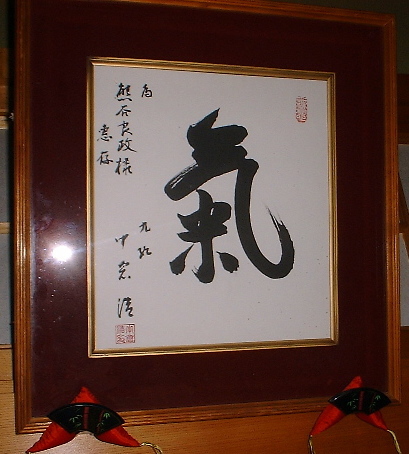 氣
為
熊谷良政様
恵存
九段
中倉清